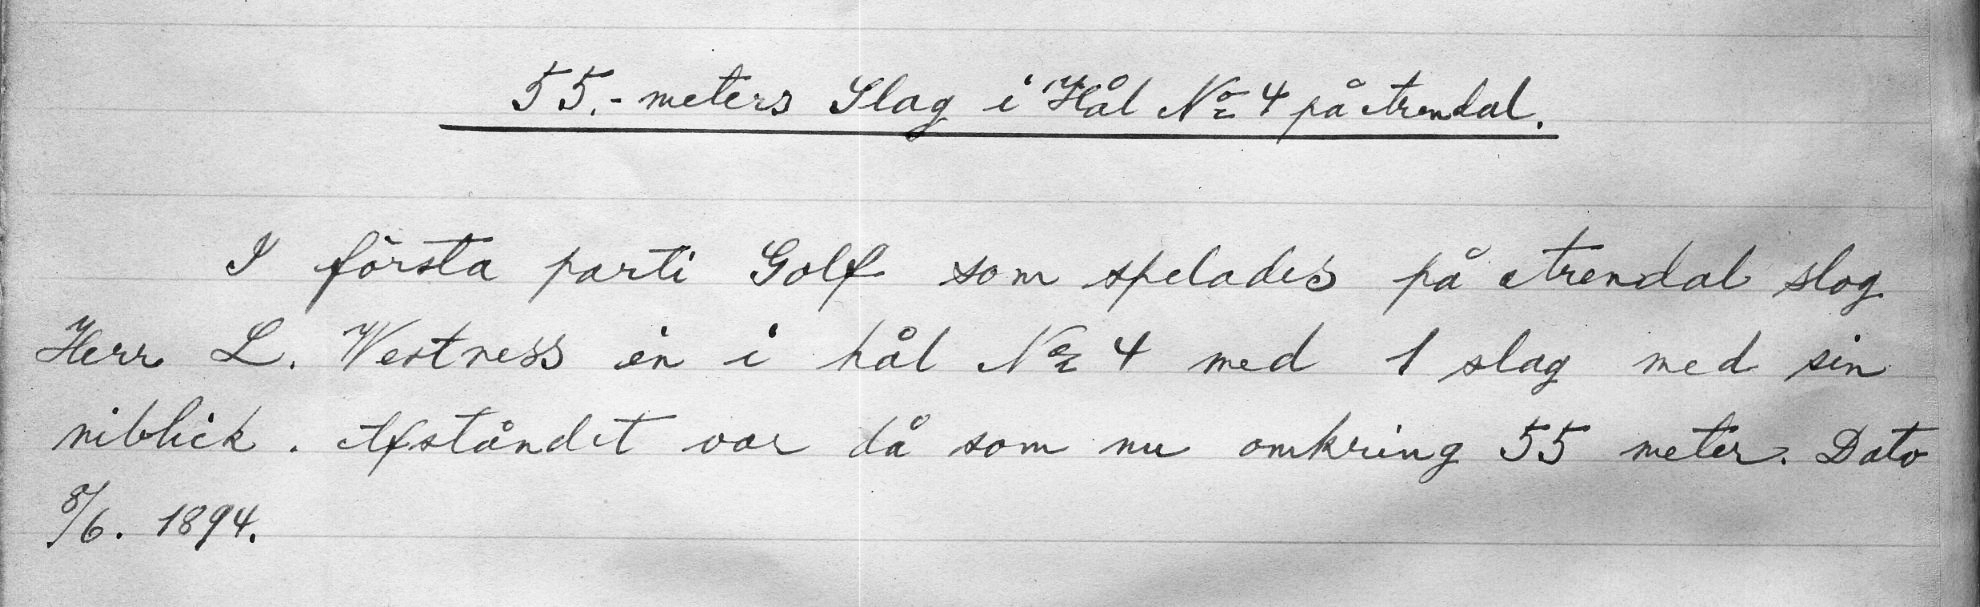 55.-meters Slag i Hål No 4 på Arendal.
I första parti Golf som spelades på Arendal slog
Herr L. Westness en i hål No 4 med 1 slag med sin
niblick. Afståndet var då som nu omkring 55 meter. Dato
8/6. 1894.